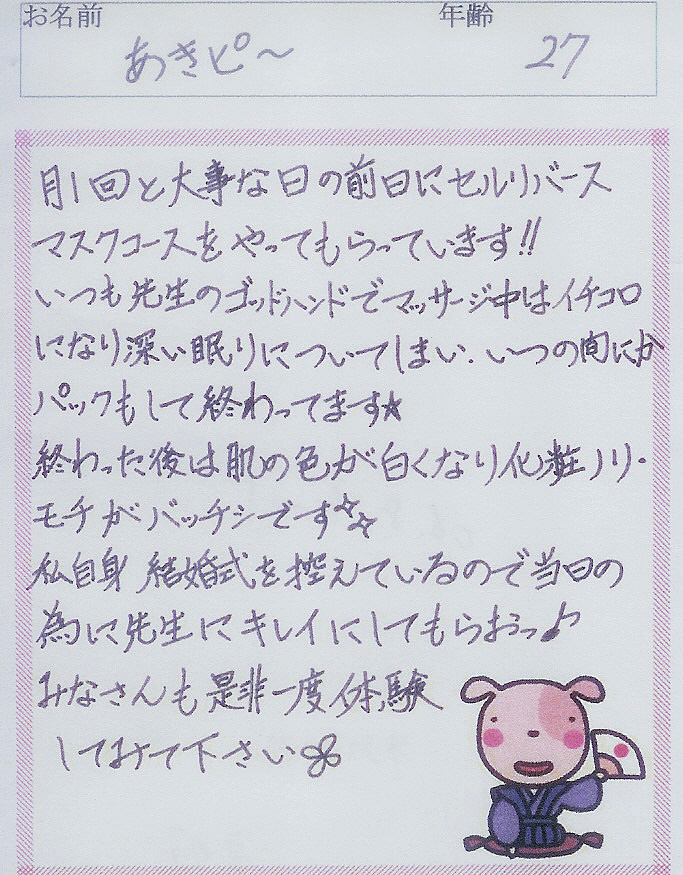 お名前 年齢
あきピ〜 27
月1回と大事な日の前日にセルリバース
マスクコースをやってもらっています!!
いつも先生のゴッドハンドでマッサージ中はイチコロ
になり深い眠りについてしまい、いつの間にか
パックもして終わってます★
終わった後は肌の色が白くなり化粧ノリ・
モチがバッチシです☆☆
私自身、結婚式を控えているので当日の
為に先生にキレイにしてもらおっ♪
みなさんも是非一度体験
してみて下さい